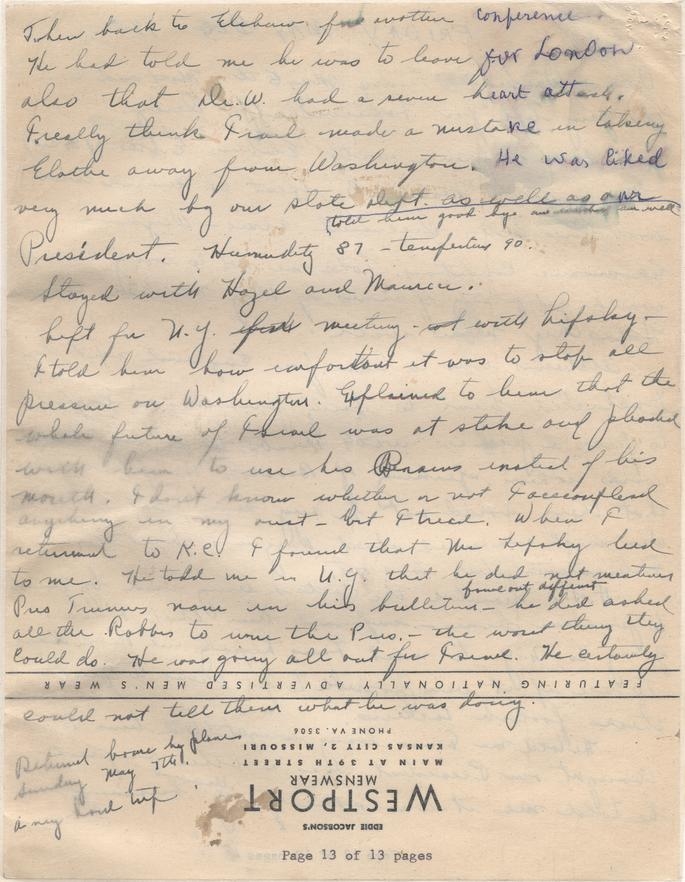 Then back to Elehaw for another conference.
He had told me he was to leave for London
also that De.W. had a severe heart attack.
I really think Israel made a mistake in taking
Elathe away from Washington. He was liked
very much by our state dept. as well as our
told him good bye and as well
President. Humidity 87 - temperture 90.
Stayed with Hazel and Maurice.
Left for N.Y. meeting - with Lifsky -
I told him how important it was to stop all
pressure on Washington. Explained to him that the
whole future of Israel was at stake and pleaded
with him to use his Brains instead of his
mouth. I don't know whether or not I accomplised
anything in my - but I tried. When I
returned to K.C. I found that Mr Lifsky lied
to me. He told me in N.Y. that he did not mention
prove out different
Pres Trumans name in his bulletins - he did asked
all the Rabbis to wire the Pres. - the worst thing they
could do. He was going all out for Israel. He certainly
FEATURING NATIONALLY ADVERTISED MEN'S WEAR
could not tell them what he was doing.
Returned home by plane
Sunday May 7th.
a very hard trip
PHONE VA. 3506
KANSAS CITY 2, MISSOURI
MAIN AT 39TH STREET
MENSWEAR
WESTPORT
EDDIE JACOBSON'S
Page 13 of 13 pages